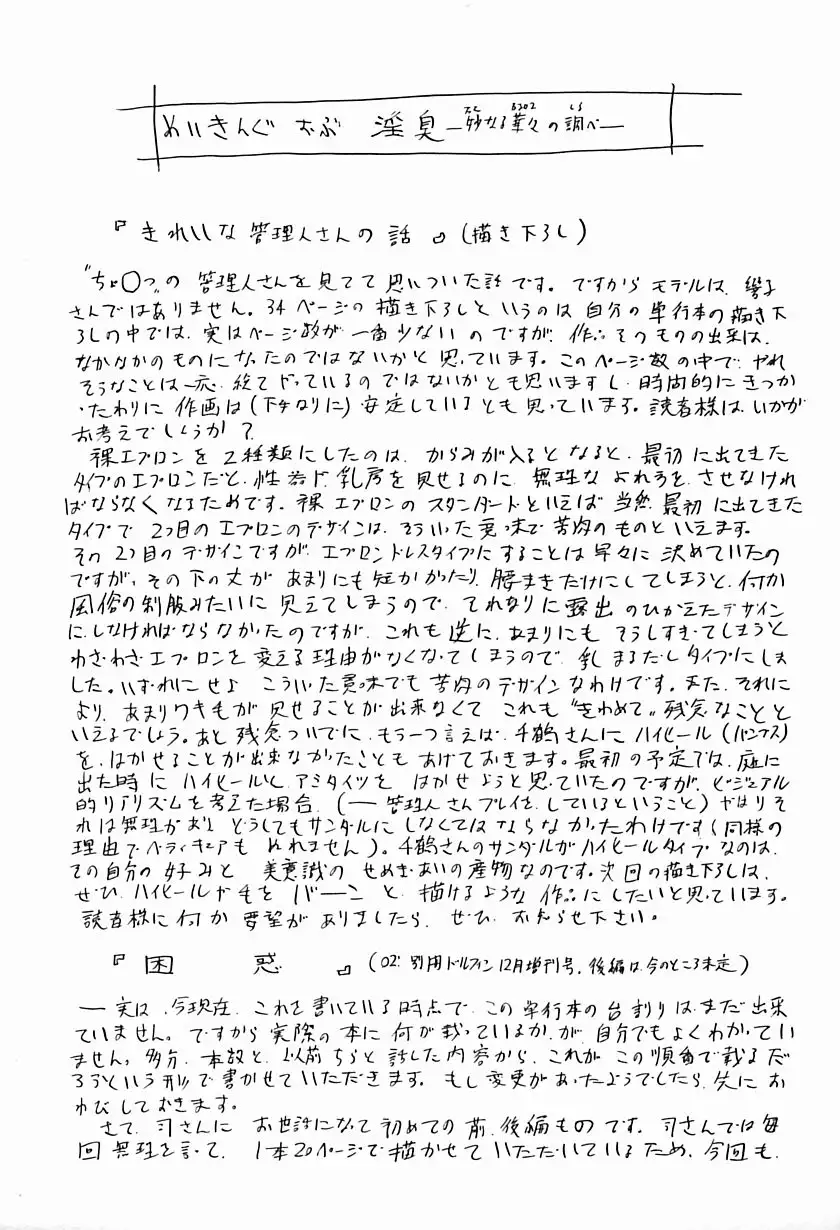 めいきんぐ おぶ 淫臭 ―妙なる華々の調べ―
『きれいな管理人さんの話』(描き下ろし)
"ちょ○っ"の管理人さんを見てて思いついた話です。ですからモデルは、響子
さんではありません。34ページの描き下ろしというのは自分の単行本の描き下
ろしの中では、実はページ数が一番少ないのですが、作品そのものの出来は、
なかなかのものになったのではないかと思っています。このページ数の中で、やれ
そうなことは一応、総てやっているのではないかとも思いますし、時間的にきつか
ったわりに作画は(下手なりに)安定しているとも思っています。読者様はいかが
お考えでしょうか?
裸エプロンを2種類にしたのは、からみが入るとなると、最初に出てきた
タイプのエプロンだと、性器や乳房を見せるのに、無理なよれ方をさせなけれ
ばならなくなるためです。裸エプロンのスタンダードといえば当然、最初に出てきた
タイプで2つ目のエプロンのデザインは、そういった意味で苦肉のものといえます。
その2つ目のデザインですが、エプロンドレスタイプにすることは早々に決めていたの
ですが、その下の丈があまりにも短かかったり、腰まきだけにしてしまうと、何か
風俗の制服みたいに見えてしまうので、それなりに露出のひかえたデザイン
にしなければならなかったのですが、これも逆に、あまりにもそうしすぎてしまうと
わざわざエプロンを変える理由がなくなってしまうので、乳まるだしタイプにしま
した。いずれにせよ こういった意味でも苦肉のデザインなわけです。また、それに
より、あまりワキ毛が見せることが出来なくて これも"きわめて"残念なことと
いえるでしょう。あと残念ついでに、もう一つ言えば、千鶴さんにハイヒール(パンプス)
を、はかせることが出来なかったこともあげておきます。最初の予定では、庭に
出た時にハイヒールと、アミタイツを はかせようと思っていたのですが、ビジュアル
的リアリズムを考えた場合、(―管理人さんプレイを、しているということ)やはりそ
れは無理があり、どうしてもサンダルにしなくてはならなかったわけです(同様の
理由でペディキュアもぬれません)。千鶴さんのサンダルがハイヒールタイプなのは、
その自分の好みと 美意識のせめぎあいの産物なのです。次回の描き下ろしは、
ぜひ、ハイヒールや毛をバーンと、描けるような作品にしたいと思っています。
読者様に何か要望がありましたら、ぜひ、お知らせ下さい。
『困 惑』(02'別冊ドルフィン12月増刊号、後編は今のところ未定)
―実は、今現在、これを書いている時点で、この単行本の台割りは、まだ出来
ていません。ですから実際の本に何が載っているか、が、自分でもよくわかってい
ません。多分、本数と、以前ちらと話した内容から、これがこの順番で載るだ
ろうという形で書かせていただきます。もし変更があったようでしたら、先にお
わびしておきます。
さて、司さんに お世話になって初めての前、後編ものです。司さんでは毎
回無理を言って、1本20ページで描かせていただいているため、今回も、